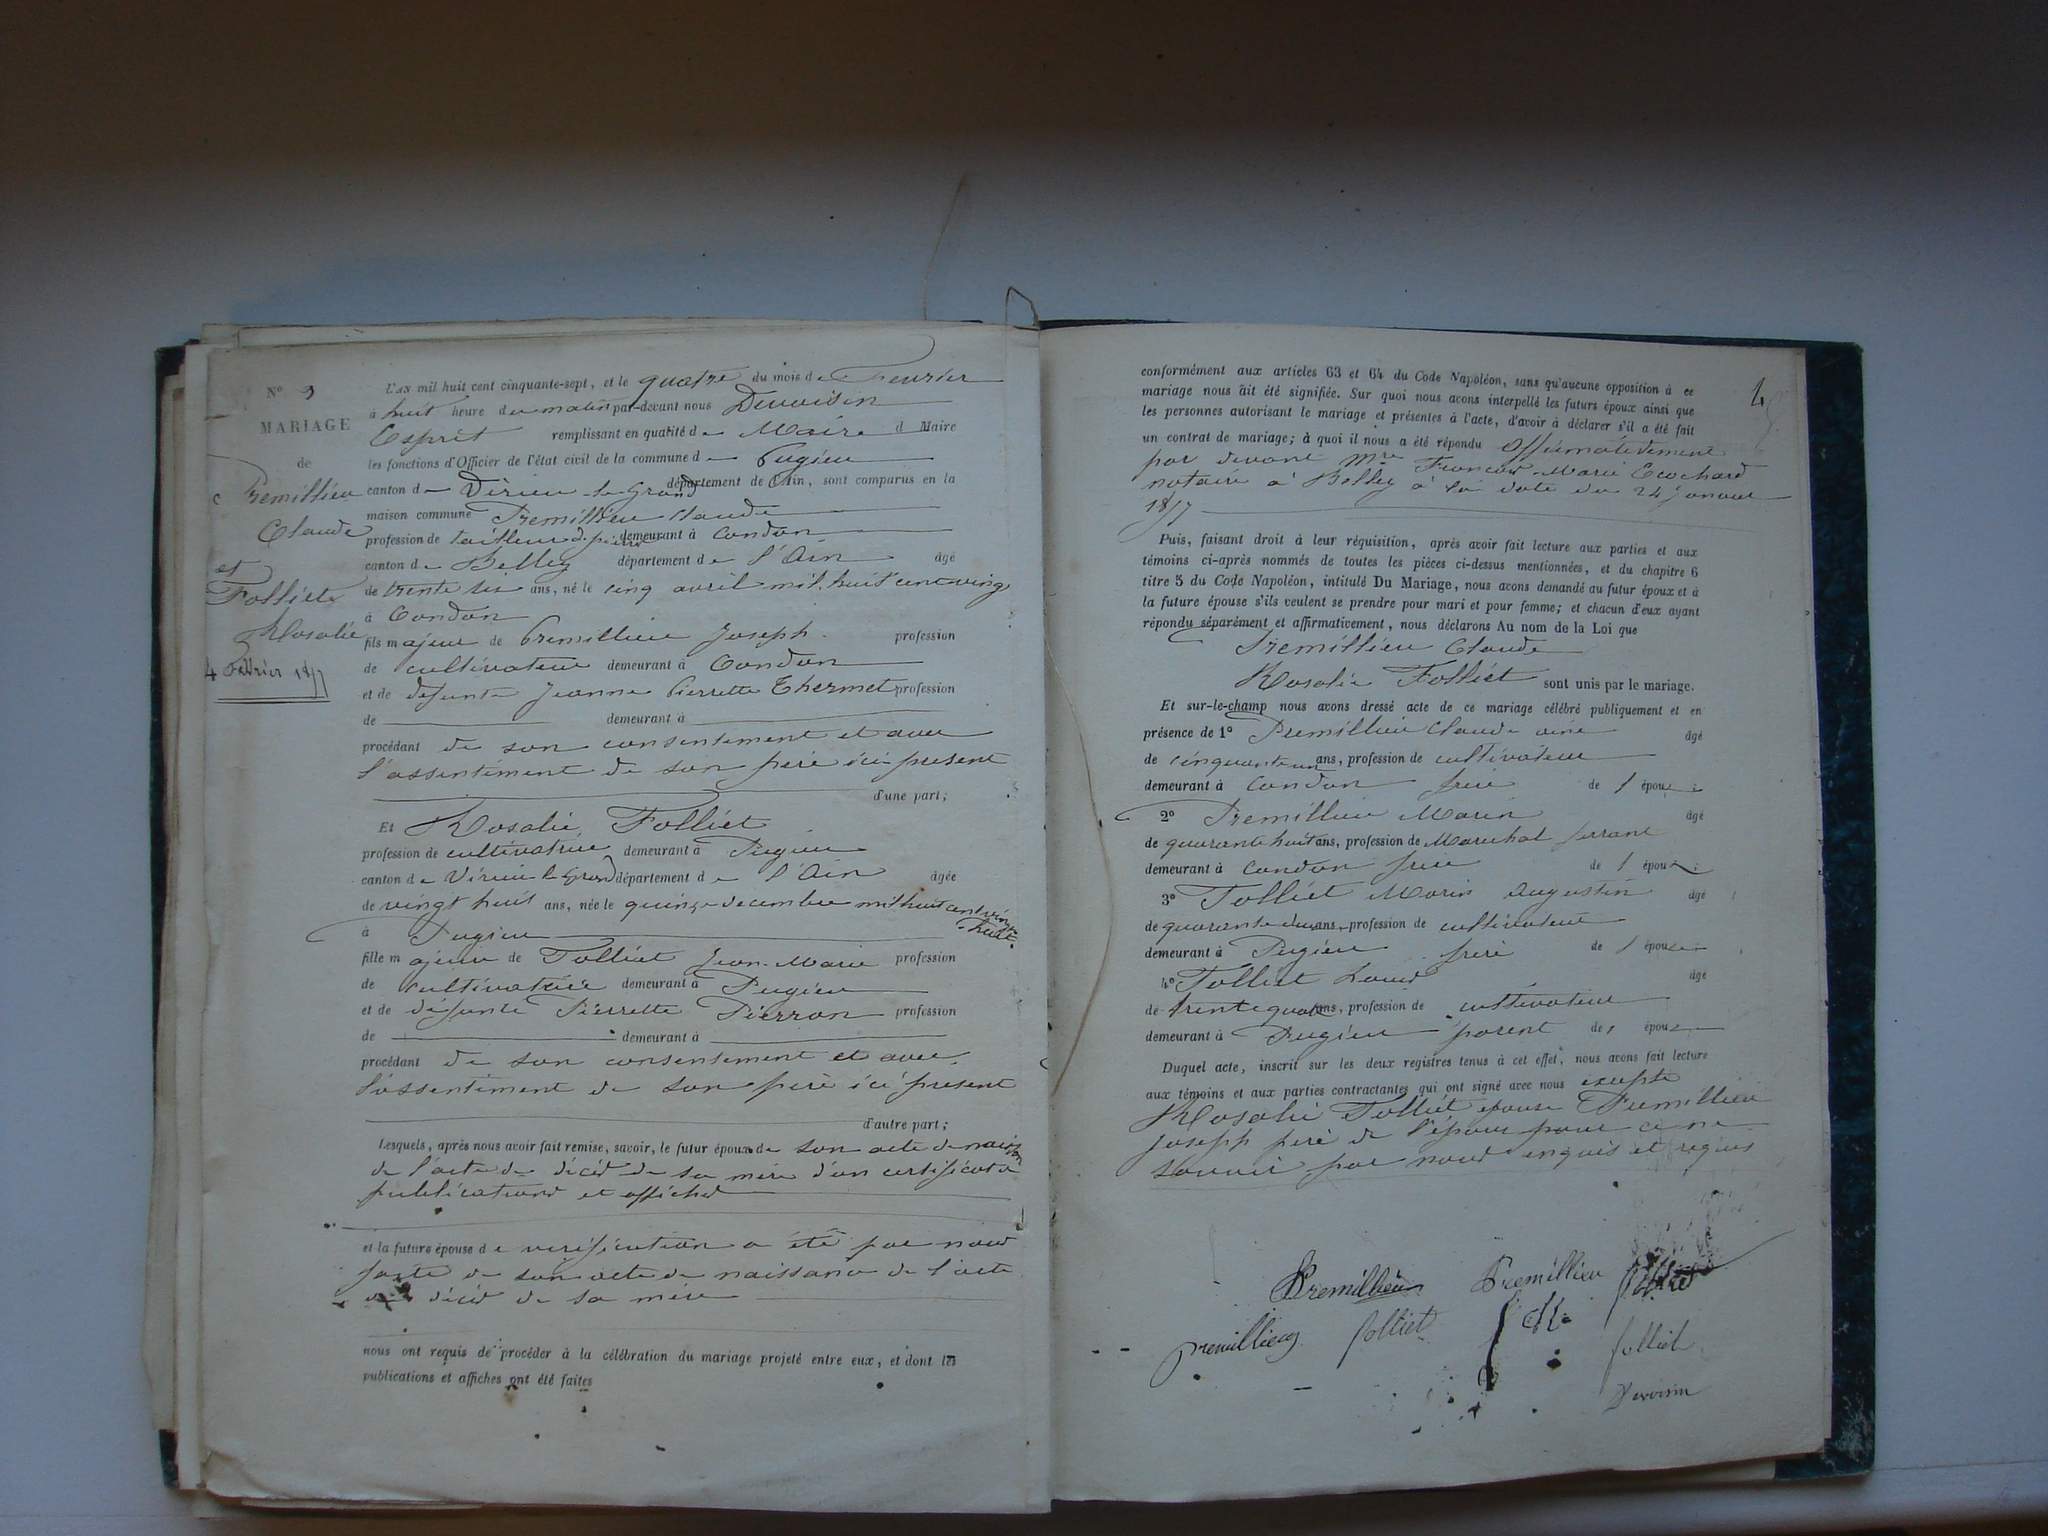 N° 3
MARIAGE
de
Premillieu
Claude
et
Folliet
Rosalie
4 Février 1857
L'AN mil huit cent cinquante-sept, et le quatre du mois de Fevrier
à huit heure du matin par-devant nous Devoisin
Esprit remplissant en qualité de Maire d Maire
les fonctions d'Officier de l'état civil de la commune de Pugieu
canton de Virieu le Grand département de l'Ain, sont comparus en la
maison commune Premillieu Claude
profession de tailleur de pierre demeurant à Condon
canton de Belley département de l'Ain âgé
de trente six ans, né le cinq avril mil huit cent vingt
à Condon
fils majeur de Premillieu Joseph profession
de cultivateur demeurant à Condon
et de defunte Jeanne Pierrette Thermet profession
de demeurant à
procédant de son consentement et avec
l'assentiment de son père ici present
d'une part;
Et Rosalie Folliet
profession de cultivatrice demeurant à Pugieu
canton de Virieu le Grand département de l'Ain âgée
de vingt huit ans, née le quinze decembre mil huit cent vingt
huit
à Pugieu
fille majeure de Folliet Jean-Marie profession
de cultivatrice demeurant à Pugieu
et de défunte Pierrette Pierron profession
de demeurant à
procédant de son consentement et avec
l'assentiment de son père ici present
d'autre part;
Lesquels, après nous avoir fait remise, savoir, le futur époux de son acte de naissan
de l'acte de décès de sa mère d'un certificat de
publications et affiches
et la future épouse de verification a été par nous
faite de son acte de naissance de l'acte
de décès de sa mère
nous ont requis de procéder à la célébration du mariage projeté entre eux, et dont les
publications et affiches ont été faites
4
conformément aux articles 63 et 64 du Code Napoléon, sans qu'aucune opposition à ce
mariage nous ait été signifiée. Sur quoi nous avons interpellé les futurs époux ainsi que
les personnes autorisant le mariage et présentes à l'acte, d'avoir à déclarer s'il a été fait
un contrat de mariage; à quoi il nous a été répondu affirmativement
par devant Mre Francois-Marie Ecochard
notaire à Belley à la date du 24 janvier
1857
Puis, faisant droit à leur réquisition, après avoir fait lecture aux parties et aux
témoins ci-après nommés de toutes les pièces ci-dessus mentionnées, et du chapitre 6
titre 5 du Code Napoléon, intitulé Du Mariage, nous avons demandé au futur époux et à
la future épouse s'ils veulent se prendre pour mari et pour femme; et chacun d'eux ayant
répondu séparément et affirmativement, nous déclarons Au nom de la Loi que
Premillieu Claude
Rosalie Folliet sont unis par le mariage.
Et sur-le-champ nous avons dressé acte de ce mariage célébré publiquement et en
présence de 1° Premillieu Claude ainé âgé
de cinquante un ans, profession de cultivateur
demeurant à Condon frère de l'époux
2° Premillieu Marin âgé
de quarante huit ans, profession de Marechal ferrant
demeurant à Condon frère de l'époux
3° Folliet Marin Augustin âgé
de quarante deux ans, profession de cultivateur
demeurant à Pugieu frère de l'épouse
4° Folliet Louis âgé
de trente quatre ans, profession de cultivateur
demeurant à Pugieu parent de l'épouse
Duquel acte, inscrit sur les deux registres tenus à cet effet, nous avons fait lecture
aux témoins et aux parties contractantes qui ont signé avec nous excepté
Rosalie Folliet epouse Premillieu
Joseph père de l'époux pour ce ne
savoir par nous enquis et requis
Premillieu Premillieu folliet
premillieu folliet folliet
Devoisin